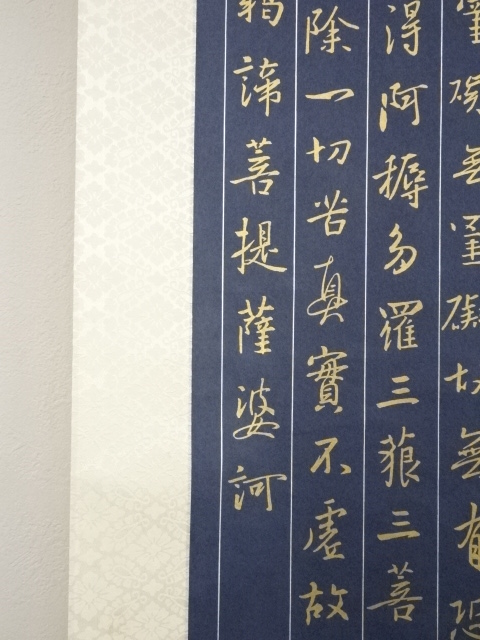 罣礙无罣礙故無有恐
得阿耨多羅三藐三菩
除一切苦真實不虛故
諦菩提薩婆訶